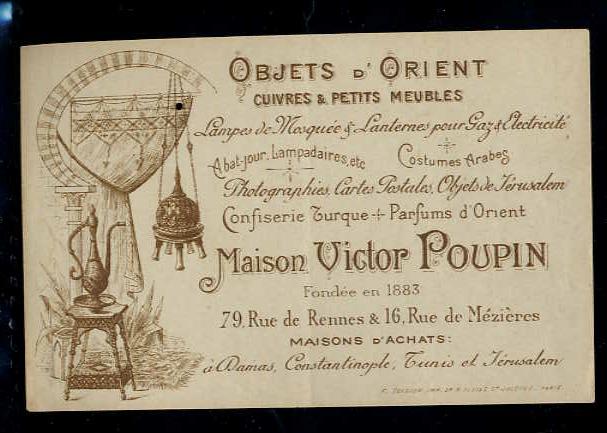 OBJETS D'ORIENT
CUIVRES & PETITS MEUBLES
Lampes de Mosquée & Lanternes pour Gaz & Electricité
Abat-jour, Lampadaires, etc
Costumes Arabes
Photographies, Cartes Postales, Objets de Jérusalem
Confiserie Turque + Parfums d'Orient
Maison Victor POUPIN
Fondée en 1883
79, Rue de Rennes & 16, Rue de Mézières
MAISONS D'ACHATS:
à Damas, Constantinople, Tunis et Jérusalem
PARIS